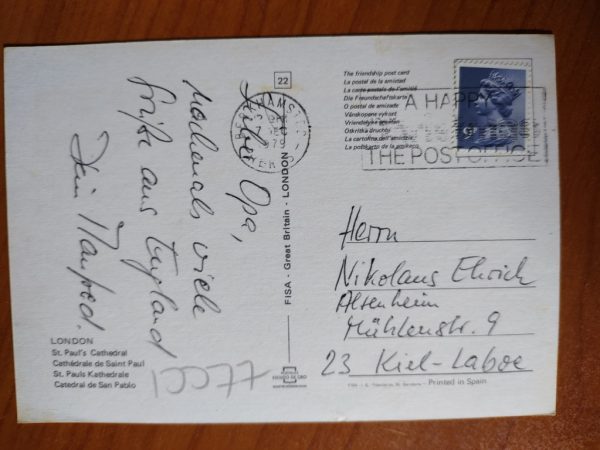 22
The friendship post card
La postal de la amistad
La carte postale de l'amitié
Die Freundschaftskarte
O postal de amizade
Vänskapens vykort
Vriendelijke groeten
La cartolina dell'amicizia
La postkarto de la amikeco
A HAPPY
THE POST OFFICE
1979
9P
Lieber Opa,
nochmals viele
Grüße aus England
Dein Manfred.
FISA - Great Britain - LONDON
Herrn
Nikolaus Ehrich
Altenheim
Mühlenstr. 9
23 Kiel-Laboe
LONDON
St. Paul's Cathedral
Cathédrale de Saint Paul
St. Pauls Kathedrale
Catedral de San Pablo
Printed in Spain